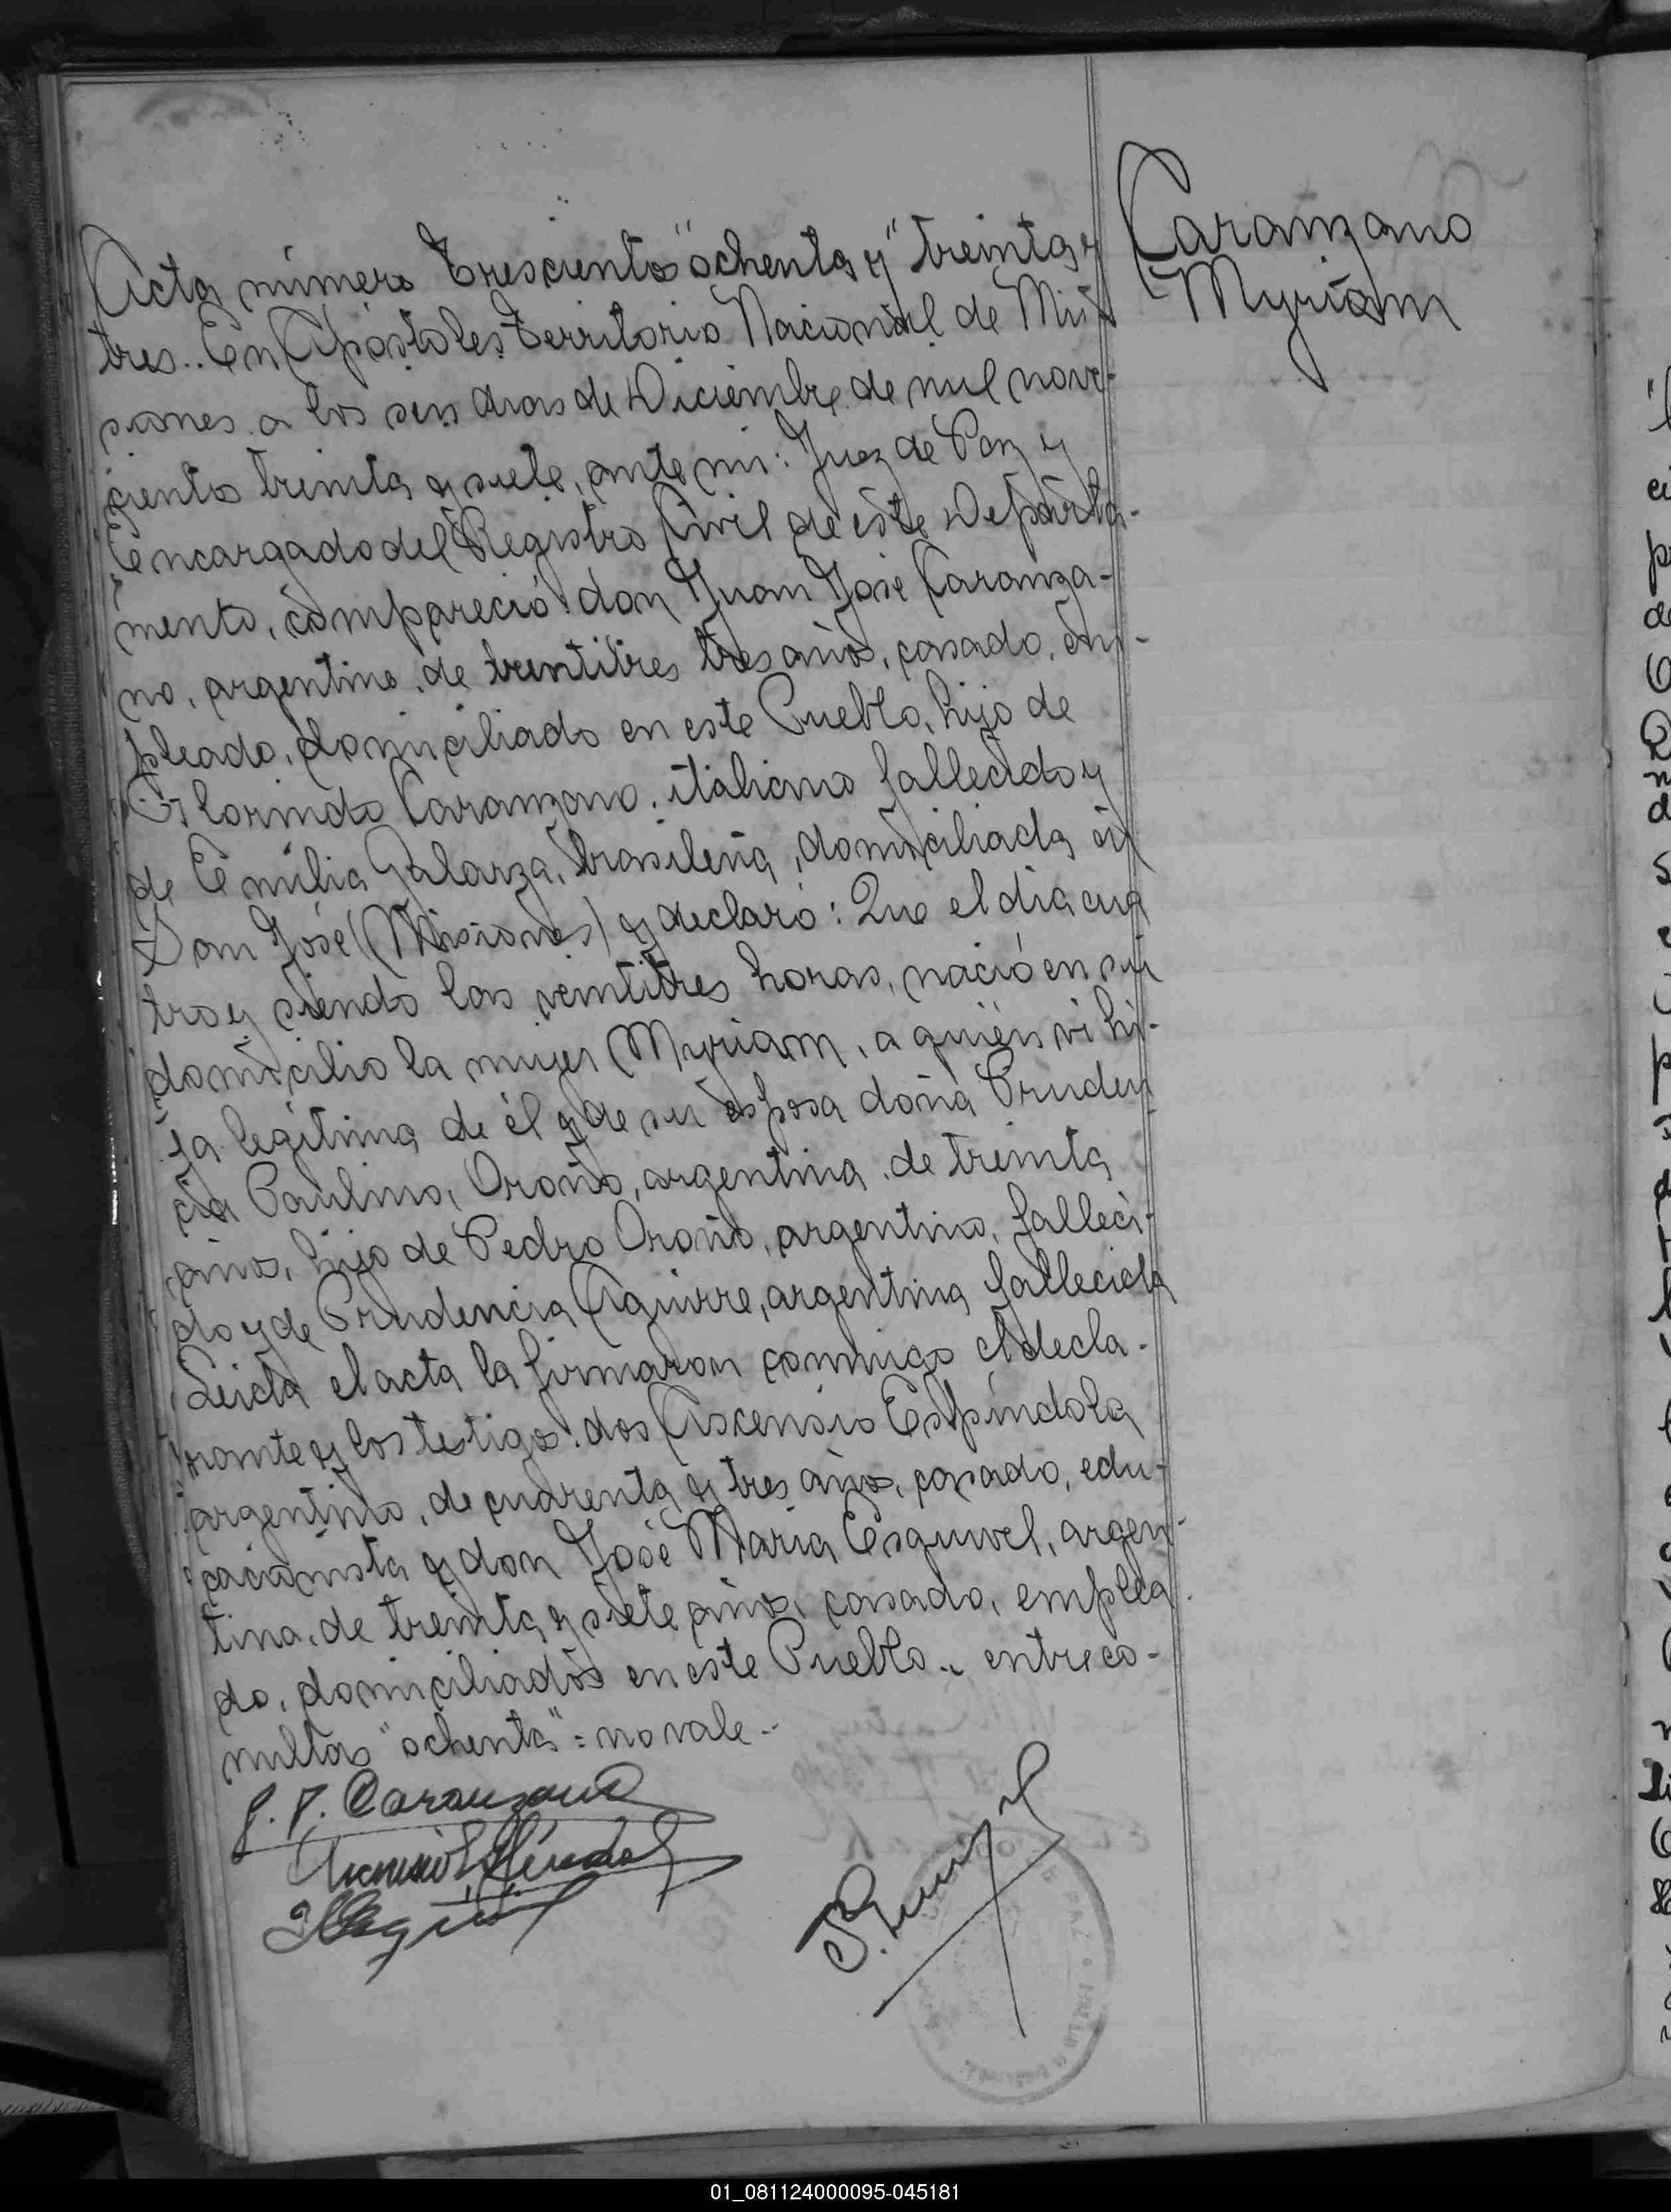 Caranzano
Myriam
Acta número Trescientos "ochenta y" treinta y
tres.. En Apóstoles Territorio Nacional de Mi-
siones a los seis dias de Diciembre de mil nove-
cientos treinta y siete, ante mi: Juez de Paz y
Encargado del Registro Civil de este Departa-
mento, compareció don Juan José Caranza-
no, argentino, de treintitres tres años, casado, em-
pleado, domiciliado en este Pueblo, hijo de
Florindo Caranzano, italiano fallecido y
de Emilia Galarza, brasileña, domiciliada en
San José (Misiones) y declaró: Que el dia cua
tro y siendo las veintitres horas, nació en su
domicilio la mujer Myriam, a quién vi hi-
ja legítima de él y de su esposa doña Pruden
cia Paulina, Oroño, argentina de treinta
años, hija de Pedro Oroño, argentino, falleci-
do y de Prudencia Aguirre, argentina fallecida
Leida el acta la firmaron conmigo el decla-
rante y los testigos: dos Ascensio Espíndola
argentino, de cuarenta y tres años, casado, edu-
cacionista y don José María Esquivel, argen-
tino, de treinta y siete años, casado, emplea
do, domiciliados en este Pueblo.. entre co-
millas "ochenta" = no vale..
J. J. Caranzano